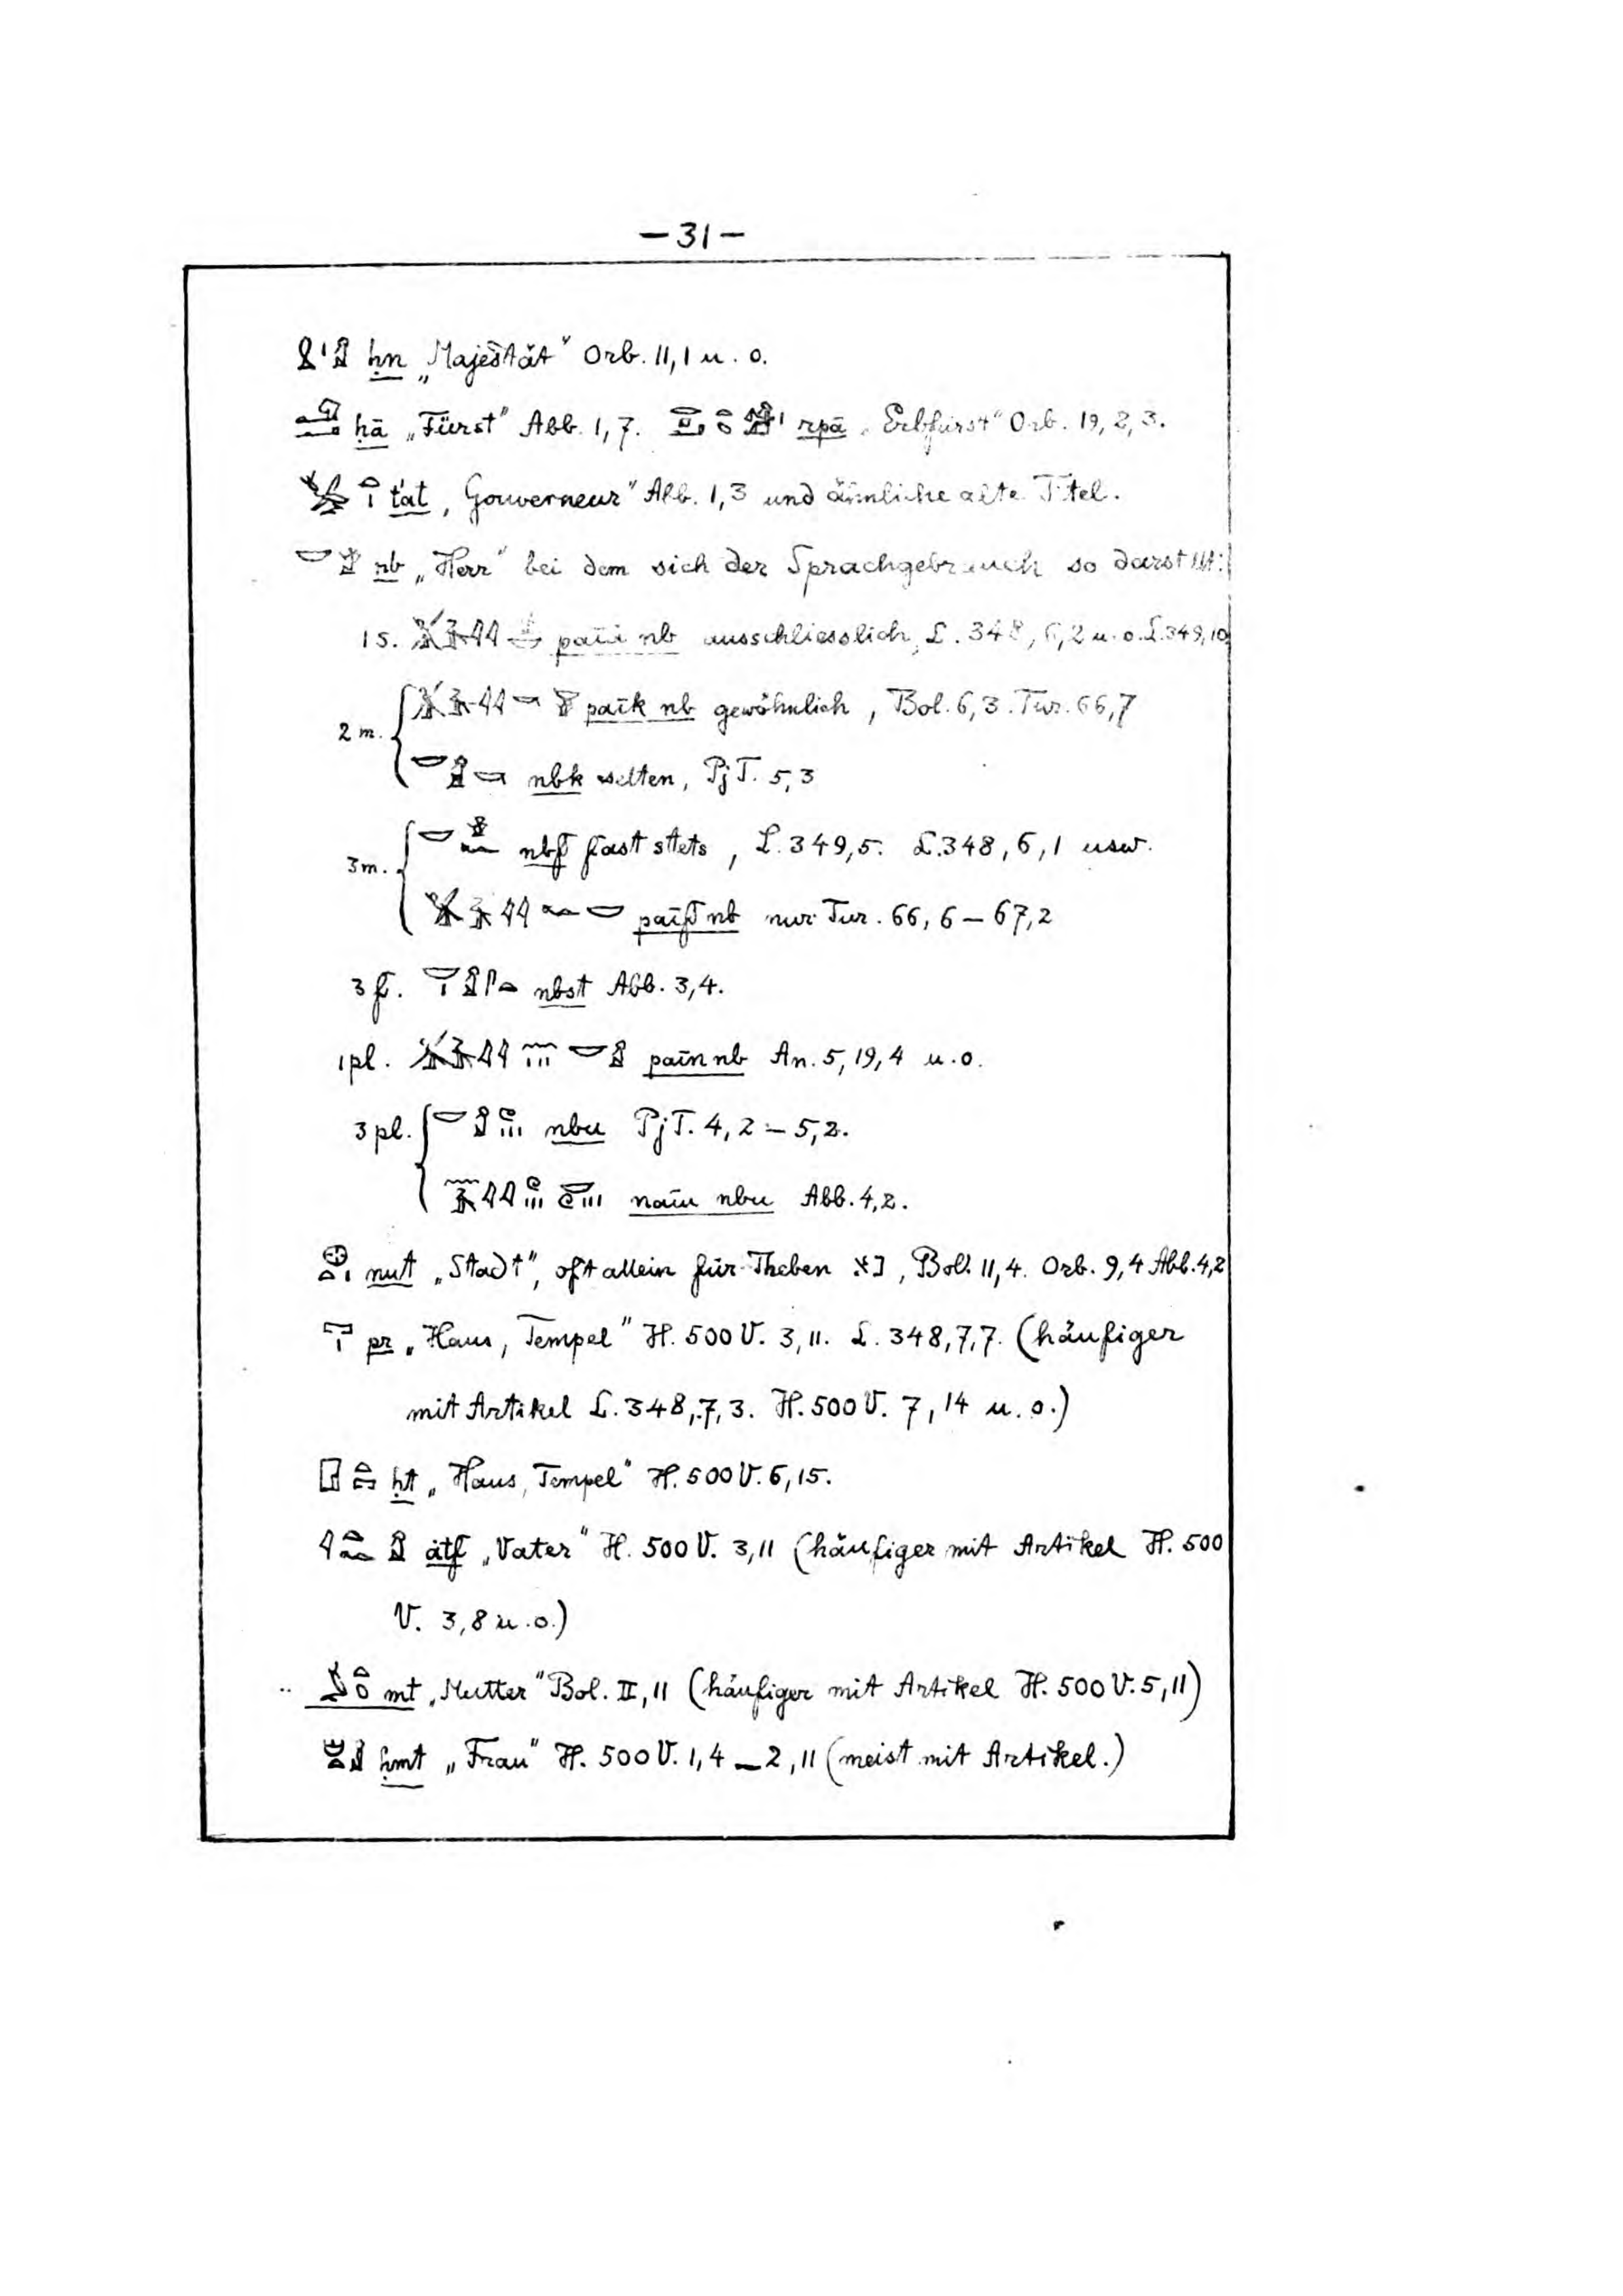 — 31 —
ḥn „Majestät" Orb. 11,1 u. o.
ḥā „Fürst" Abb. 1,7. rpā „Erbfürst" Orb. 19, 2, 3.
t'at „Gouverneur" Abb. 1,3 und ähnliche alte Titel.
nb „Herr" bei dem sich der Sprachgebrauch so darstellt:
1 s. paii nb ausschliesslich, L. 348, 6,2 u. o. L. 349,10
2 m. paīk nb gewöhnlich, Bol. 6,3. Tur. 66,7
nbk selten, PjT. 5,3
3 m. nbf fast stets, L. 349,5. L. 348, 6,1 usw.
paīf nb nur Tur. 66, 6 – 67,2
3 f. nbst Abb. 3,4.
1 pl. paīn nb An. 5, 19, 4 u. o.
3 pl. nbu PjT. 4, 2 – 5, 2.
naīu nbu Abb. 4,2.
nut „Stadt", oft allein für Theben, Bol. 11,4. Orb. 9,4 Abb. 4,2
pr „Haus, Tempel" H. 500 V. 3, 11. L. 348, 7,7. (häufiger
mit Artikel L. 348, 7, 3. H. 500 V. 7, 14 u. o.)
ḥt „Haus, Tempel" H. 500 V. 6, 15.
ȧtf „Vater" H. 500 V. 3, 11 (häufiger mit Artikel H. 500
V. 3, 8 u. o.)
mt „Mutter" Bol. II, 11 (häufiger mit Artikel H. 500 V. 5, 11)
ḥmt „Frau" H. 500 V. 1, 4 – 2, 11 (meist mit Artikel.)